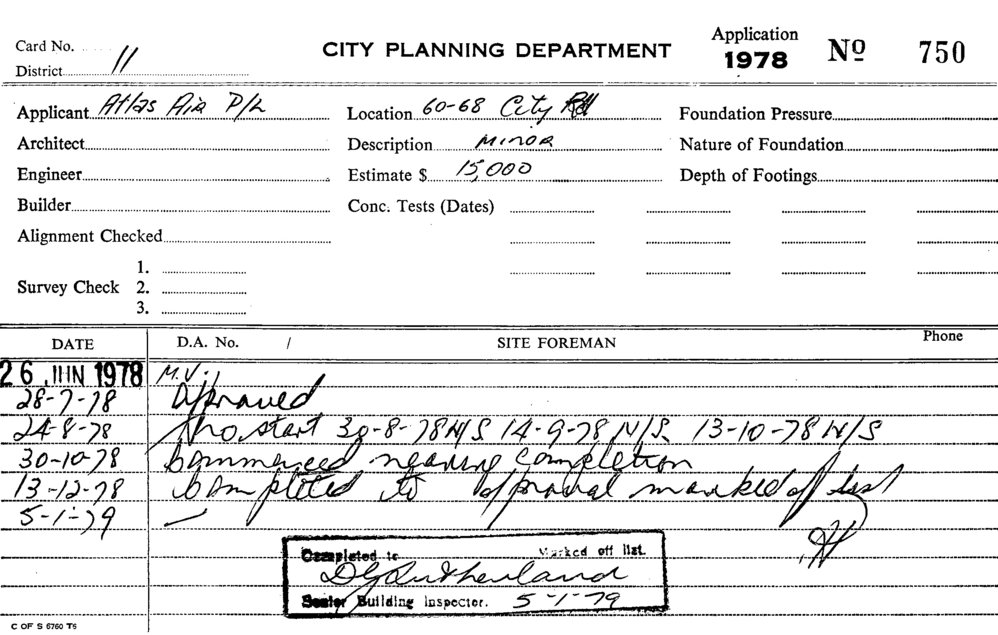 Card No. 11
CITY PLANNING DEPARTMENT
Application
1978
Nº 750
District
Applicant Atlas Air P/L
Location 60-68 City Rd
Foundation Pressure
Architect
Description Minor
Nature of Foundation
Engineer
Estimate $ 15,000
Depth of Footings
Builder
Conc. Tests (Dates)
Alignment Checked
Survey Check
1.
2.
3.
DATE D.A. No. / SITE FOREMAN Phone
26 JUN 1978 M.V.
28-7-78 Approved
24-8-78 No start 30-8-78 N/S 14-9-78 N/S 13-10-78 N/S
30-10-78 Commenced nearing completion
13-12-78 Completed to approval marked off list
5-1-79 —
Completed to Marked off list.
D G Sutherland
Senior Building Inspector. 5-1-79
C OF S 6760 T5